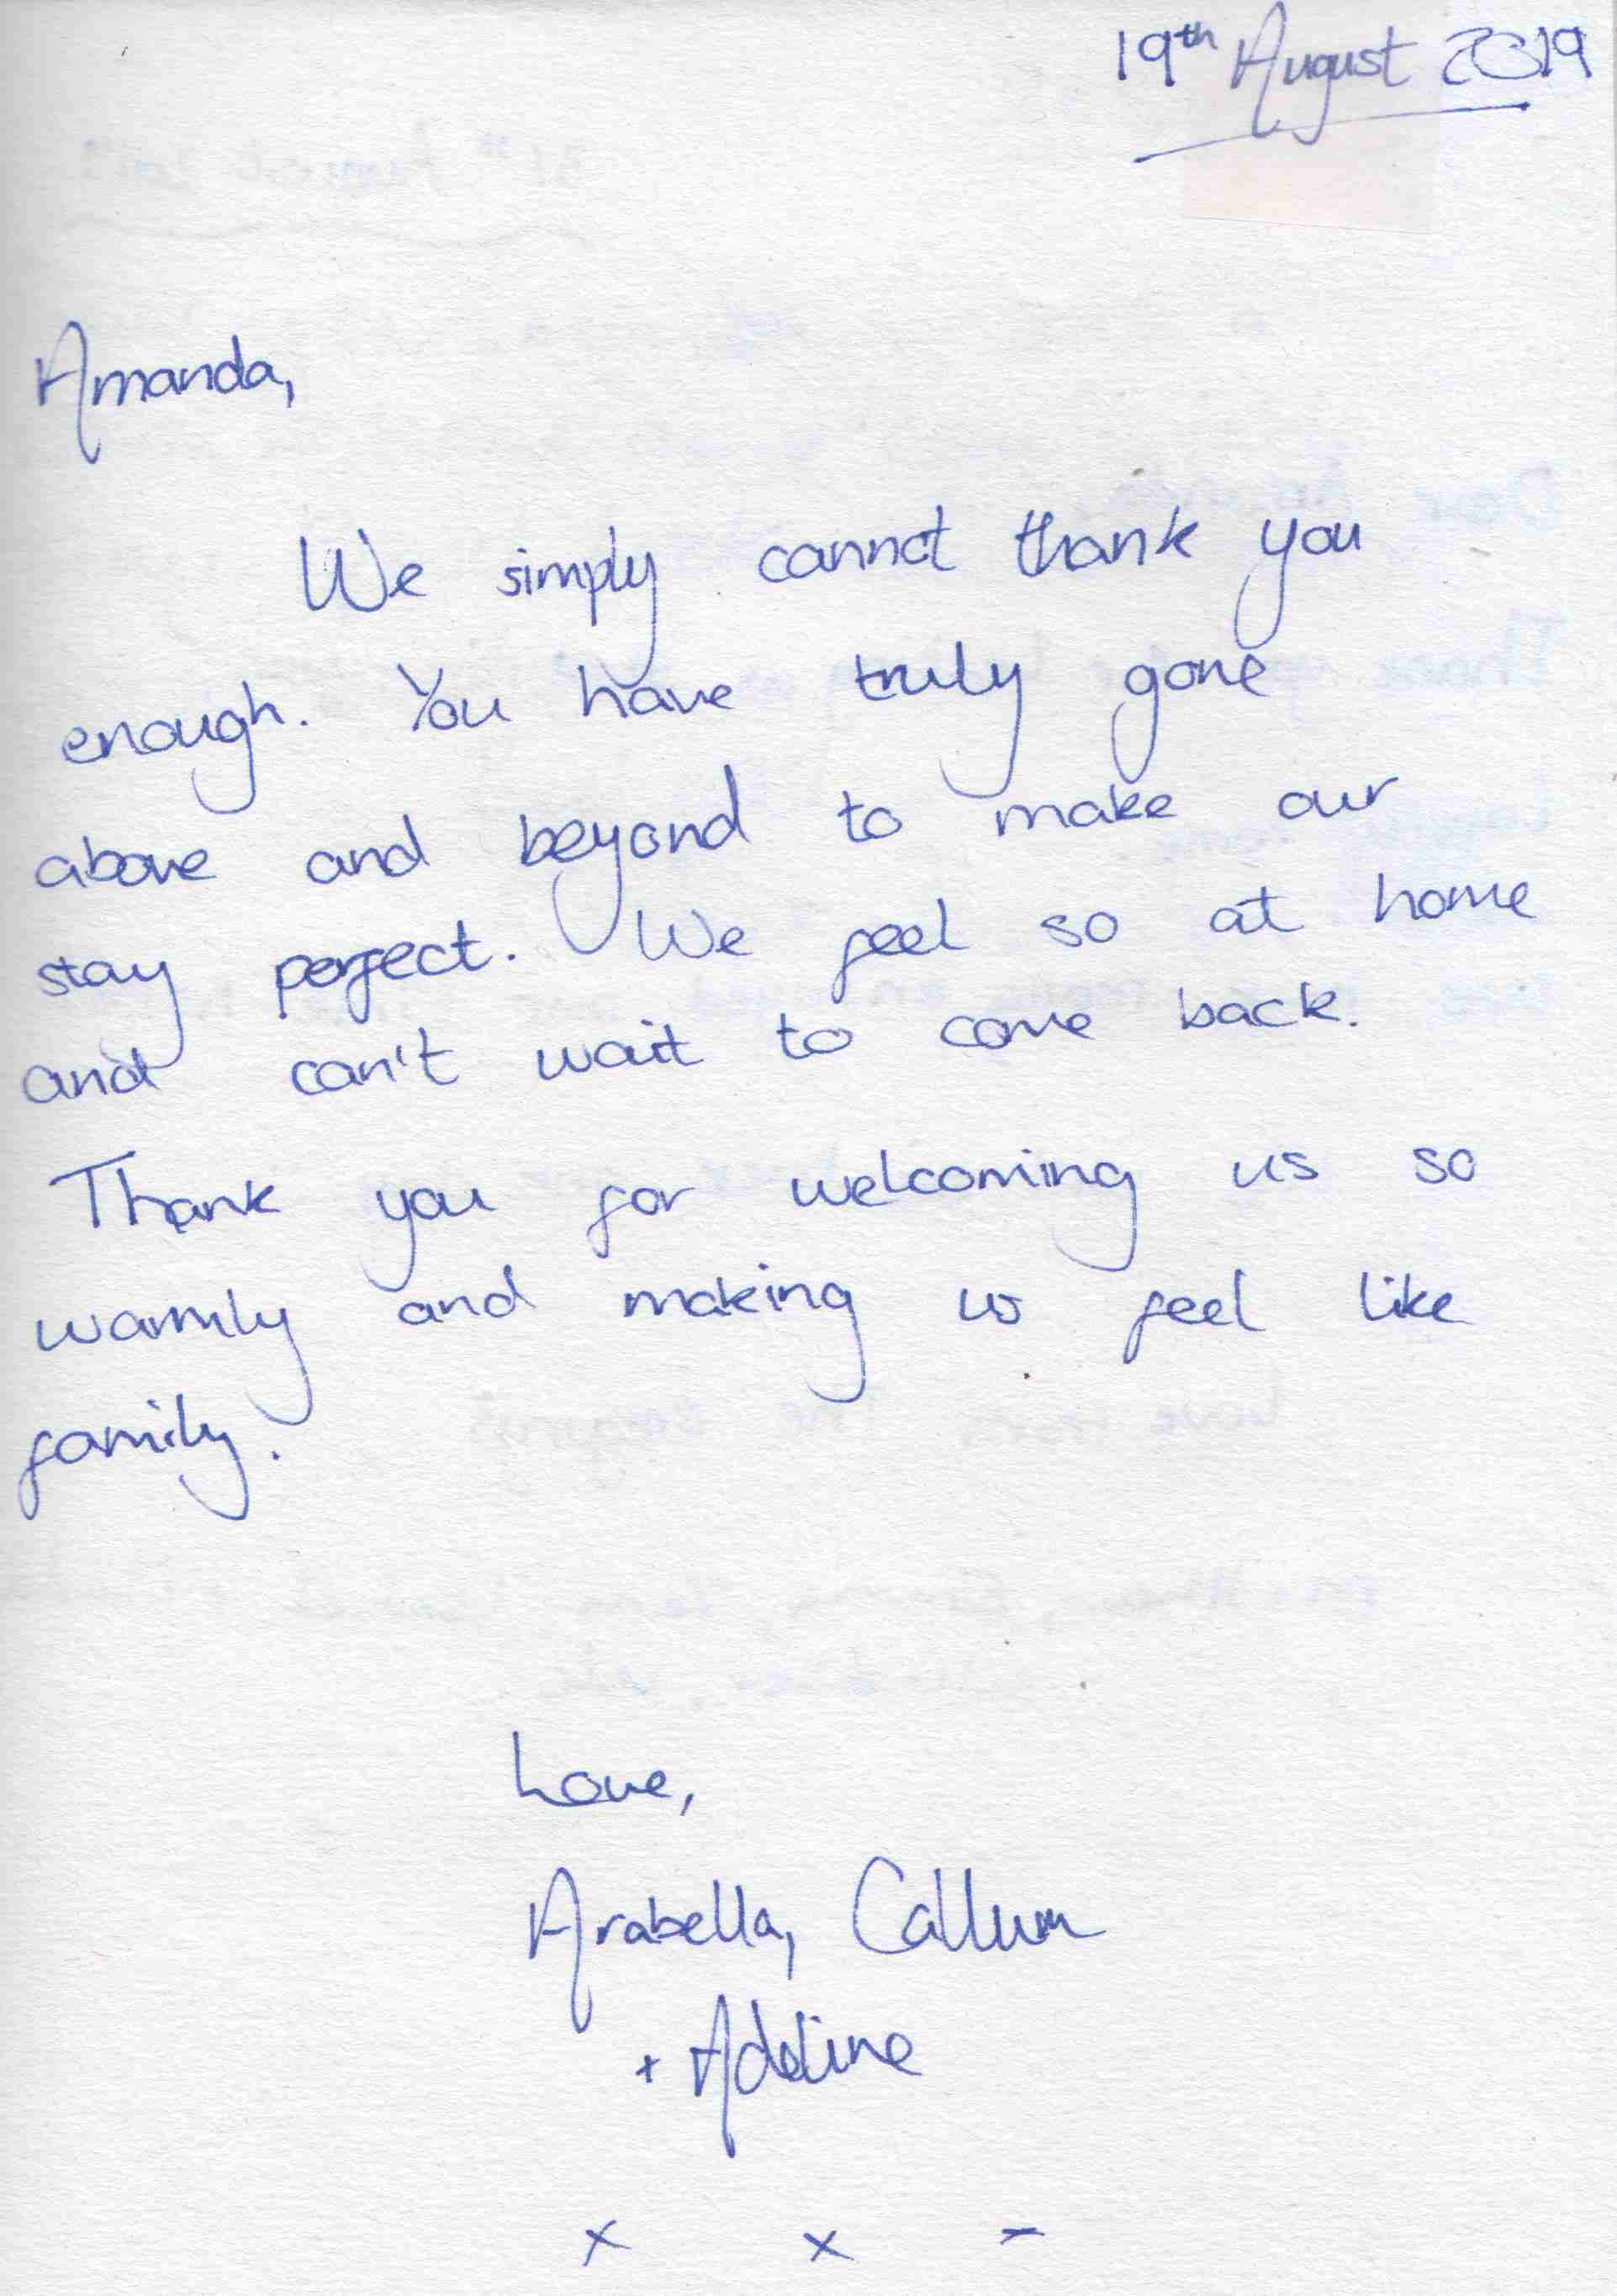 19th August 2019
Amanda,
We simply cannot thank you
enough. You have truly gone
above and beyond to make our
stay perfect. We feel so at home
and can't wait to come back.
Thank you for welcoming us so
warmly and making us feel like
family.
Love,
Arabella, Callum
+ Adeline
x x -